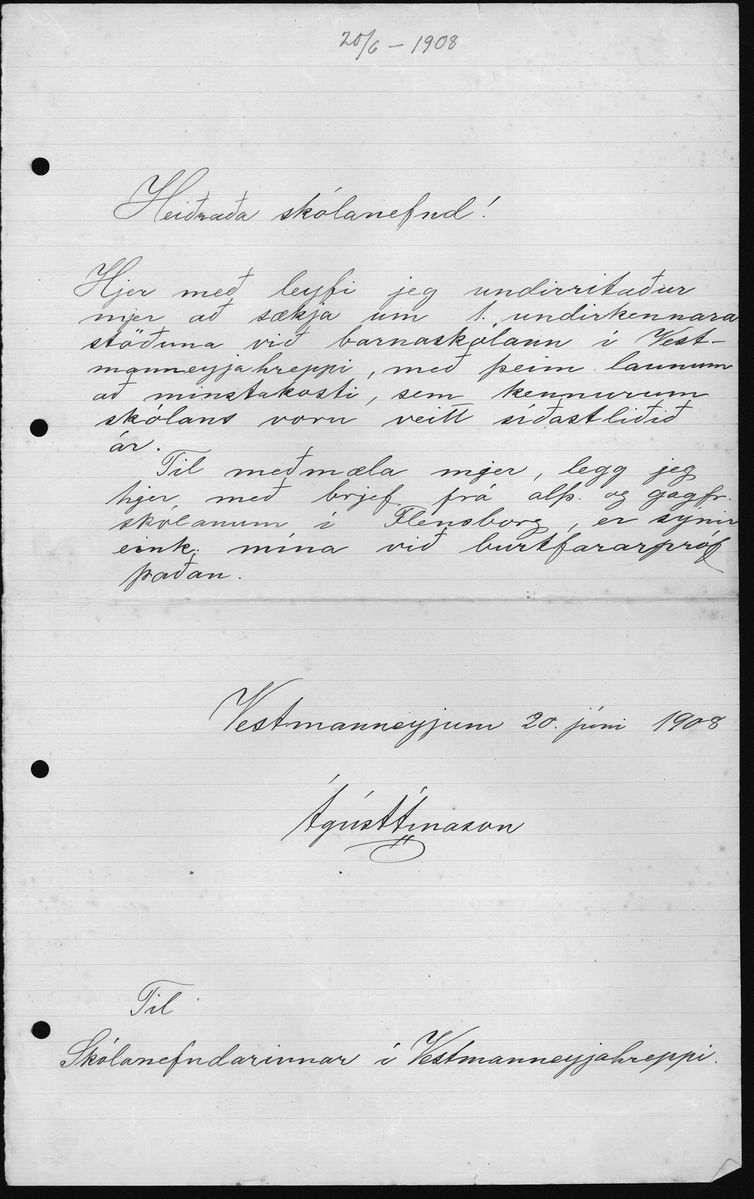 20/6 - 1908
Heiðraða skólanefnd!
Hjer með leyfi jeg undirritaður
mjer að sækja um 1. undirkennara
stöðuna við barnaskólann í Vest-
manneyjahreppi, með þeim launum
að minstakosti, sem kennurum
skólans voru veitt síðastliðið
ár.
Til meðmæla mjer, legg jeg
hjer með brjef frá alþ. og gagfr.
skólanum í Flensborg, er sýnir
eink. mína við burtfararpróf
þaðan.
Vestmanneyjum 20. júni 1908
Ágúst Árnason
Til
Skólanefndarinnar í Vestmanneyjahreppi.